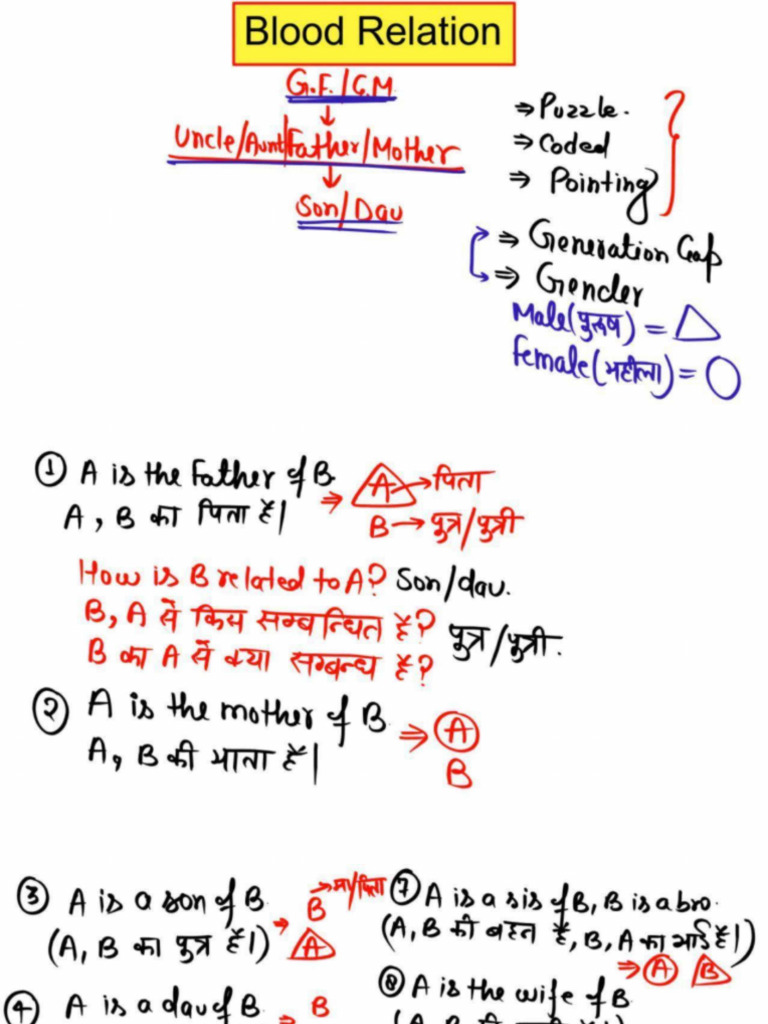 Blood Relation
G.F./G.M.
↓
Uncle/Aunt|Father/Mother
↓
Son/Dau
⇒ Puzzle.
⇒ Coded
⇒ Pointing
⇒ Generation Gap
⇒ Gender
Male(पुरुष) = △
Female(महीला) = ○
① A is the Father of B.
A, B का पिता है|
⇒ A → पिता
B → पुत्र/पुत्री
How is B related to A? Son/dau.
B, A से किस सम्बन्धित है?
B का A से क्या सम्बन्ध है?
पुत्र/पुत्री.
② A is the mother of B
A, B की माता है|
⇒ A
B
③ A is a son of B
(A, B का पुत्र है|)
→ B → मा/पिता
A
④ A is a dau of B
⇒ B
⑦ A is a sis of B, B is a bro.
(A, B की बहन है, B, A का भाई है|)
⇒ A B
⑧ A is the wife of B